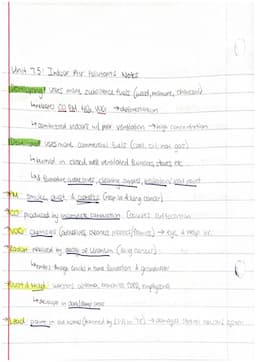 Unit 7.5: Indoor Air Pollutants Notes
Developing uses more subsistence fuels (wood, manure, charcoal)
↳ releases CO, PM, NOx, VOCs → deforestation
↳ combusted indoors w/ poor ventilation → high concentration
Developed uses more commercial fuels (coal, oil, nat gas)
↳ burned in closed, well ventilated furnaces, stoves etc.
↳
PM smoke, dust & asbestos (resp irr & lung cancer)
CO produced by incomplete combustion (causes suffocation
VOCs chemicals (adhesives, cleaners → eye & resp irr.
Radon released by decay of Uranium (lung cancer)
↳ enters through cracks in home foundation & groundwater
asthma, bronchitis, COPD, emphysema
↳ develops in dark/damp areas
Lead paint in old homes (banned by EPA in '78) → damages